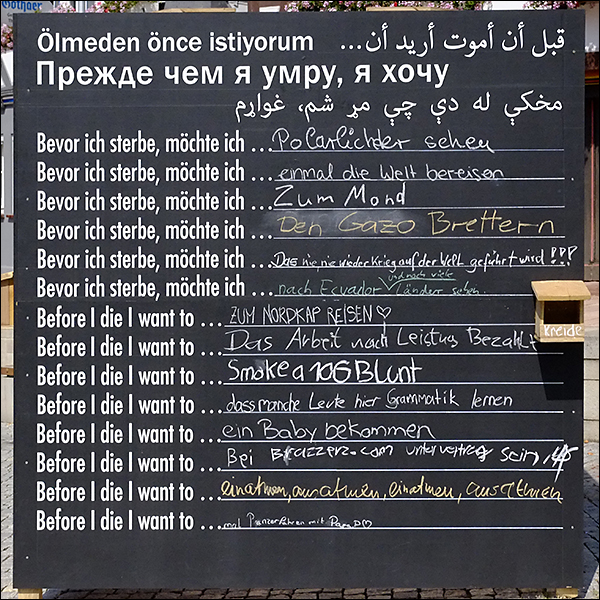 Gothaer
Ölmeden önce istiyorum قبل أن أموت أريد أن...
Прежде чем я умру, я хочу
مخکې له دې چې مړ شم، غواړم
Bevor ich sterbe, möchte ich ... Polarlichter sehen
Bevor ich sterbe, möchte ich ... einmal die Welt bereisen
Bevor ich sterbe, möchte ich ... Zum Mond
Bevor ich sterbe, möchte ich ... Den Gazo Brettern
Bevor ich sterbe, möchte ich ... Das nie, nie wieder Krieg auf der Welt geführt wird !!!
und noch viele
Bevor ich sterbe, möchte ich ... nach Ecuador Länder sehen.
Before I die I want to ... ZUM NORDKAP REISEN ♡
Before I die I want to ... Das Arbeit nach Leistung Bezahlt
Kreide
Before I die I want to ... Smoke a 10G Blunt
Before I die I want to ... dass manche Leute hier Grammatik lernen
Before I die I want to ... ein Baby bekommen
Before I die I want to ... Bei Brazzers.com unter vertrag sein
Before I die I want to ... einatmen, ausatmen, einatmen, ausatmen
Before I die I want to ... mal Panzerfahren mit Papa ♡